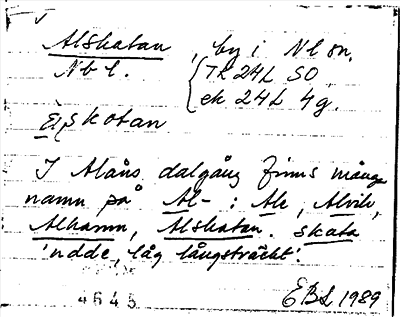 Alskatan, by i Nl sn.
Nbl. TK 24L SO
ek 24L 4g.
skatan
I Alåns dalgång finns många
namn på Al- : Ale, Alvik,
Alhamn, Alskatan. skata
'udde, låg långsträckt'.
4645 EBS, 1989